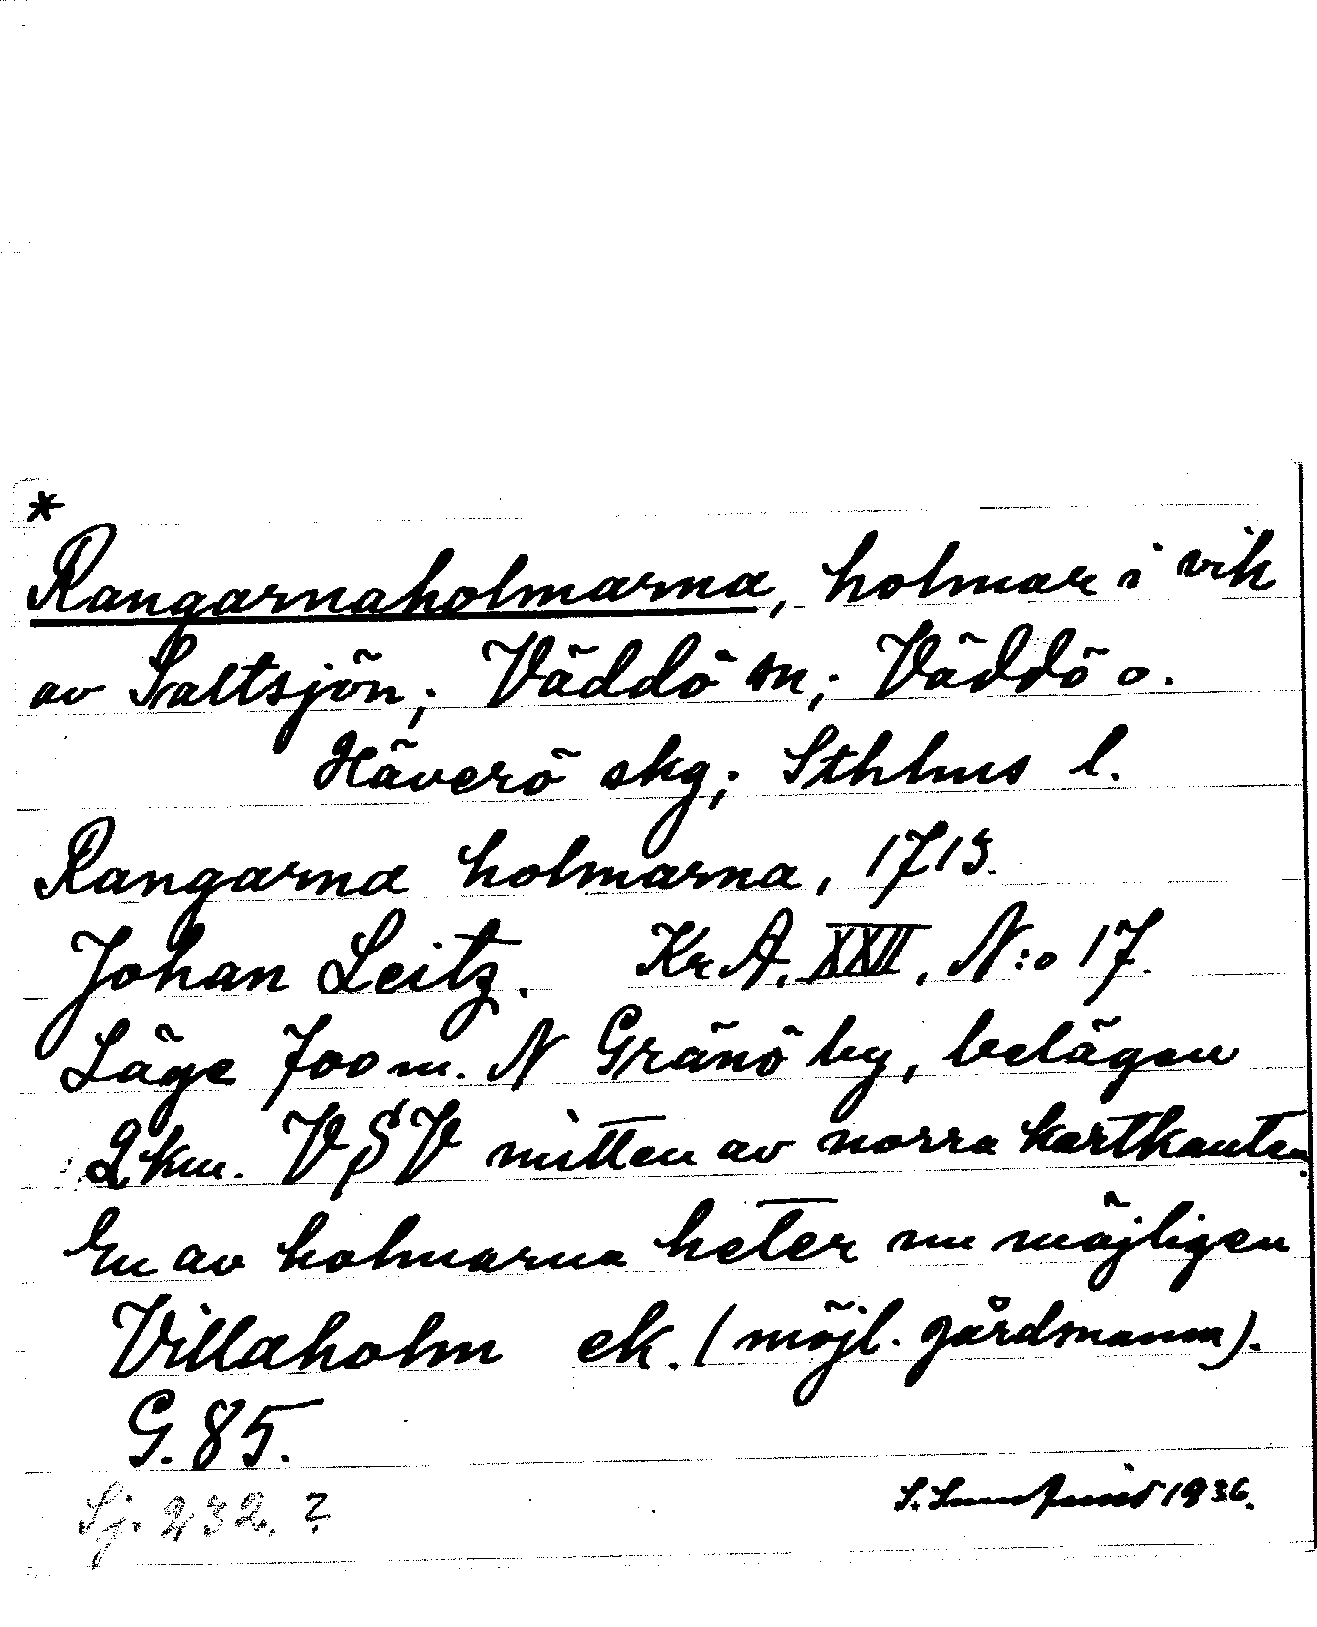 *
Rangarnaholmarna, holmar i vik
av Saltsjön; Väddö sn; Väddö o.
Häverö skg; Sthlms l.
Rangarna holmarna, 1713.
Johan Leitz. Kr A. XXII, N:o 17.
Läge 700 m. N Gränö by, belägen
2 km. VSV mitten av norra kartkanten.
En av holmarna heter nu möjligen
Villaholm ek. (möjl. gårdsnamn).
G. 85.
Sj. 232. ?
S. 1936.